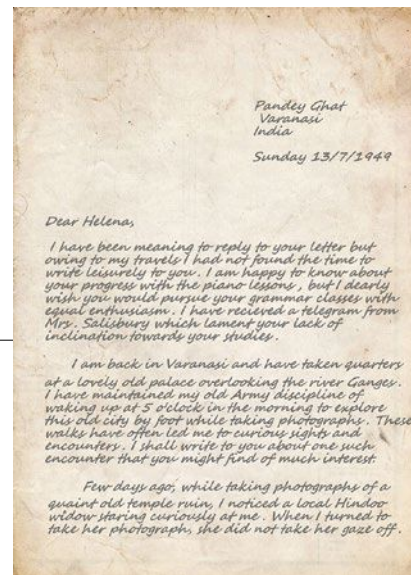 Pandey Ghat
Varanasi
India
Sunday 13/7/1949
Dear Helena,
I have been meaning to reply to your letter but
owing to my travels I had not found the time to
write leisurely to you. I am happy to know about
your progress with the piano lessons, but I dearly
wish you would pursue your grammar classes with
equal enthusiasm. I have recieved a telegram from
Mrs. Salisbury which lament your lack of
inclination towards your studies.
I am back in Varanasi and have taken quarters
at a lovely old palace overlooking the river Ganges.
I have maintained my old Army discipline of
waking up at 5 o'clock in the morning to explore
this old city by foot while taking photographs. These
walks have often led me to curious sights and
encounters. I shall write to you about one such
encounter that you might find of much interest.
Few days ago, while taking photographs of a
quaint old temple ruin, I noticed a local Hindoo
widow staring curiously at me. When I turned to
take her photograph, she did not take her gaze off.